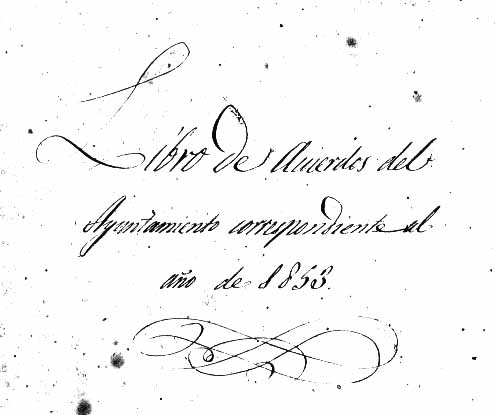 Libro de Acuerdos del
Ayuntamiento correspondiente al
año de 1853.